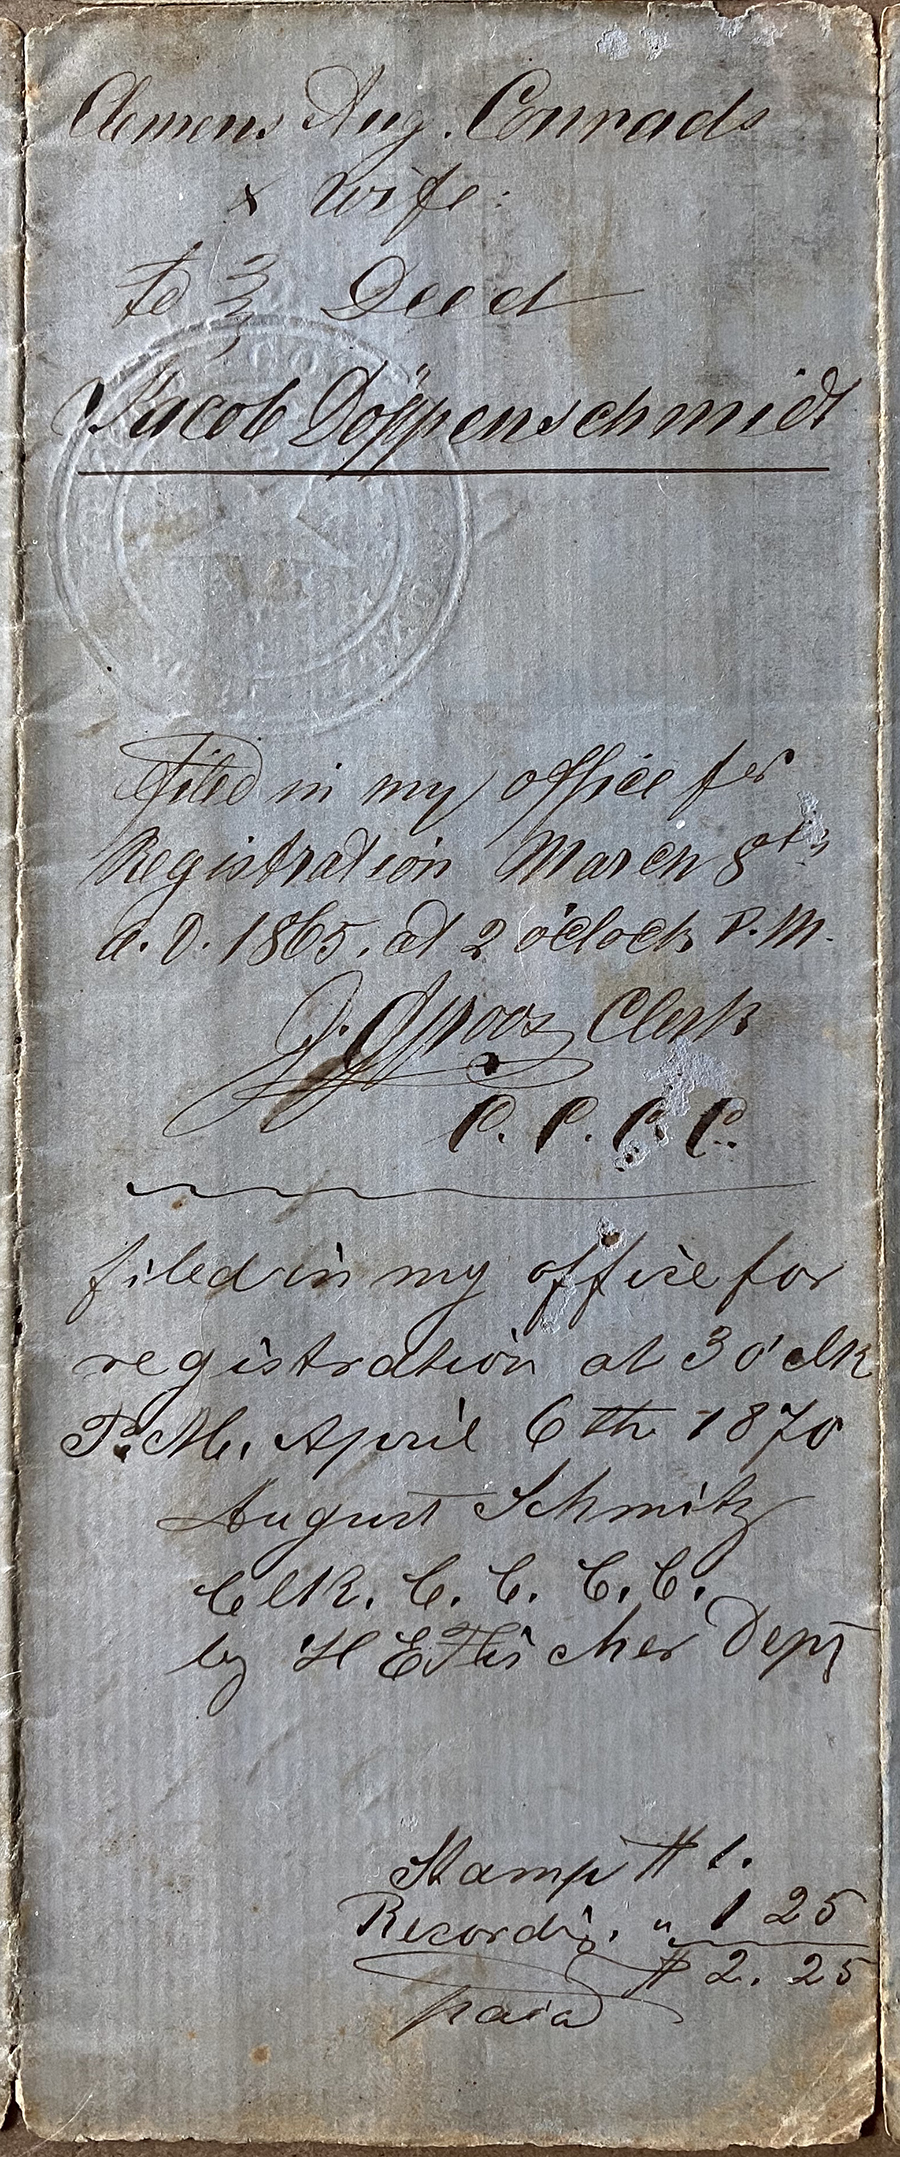 Clemens Aug. Conrads
& wife:
to } Deed
Jacob Döppenschmidt
Filed in my office for
Registration March 8th
A. D. 1865. at 2 o'clock P. M.
J. Spoos Clerk
C. C. C. C.
filed in my office for
registration at 3 o'clk
P. M. April 6th 1870
August Schmitz
Clk. C. C. C. C.
by H E Fischer Dept
Stamp $ 1.
Recordi̅g. " 1 25
$ 2. 25
paid